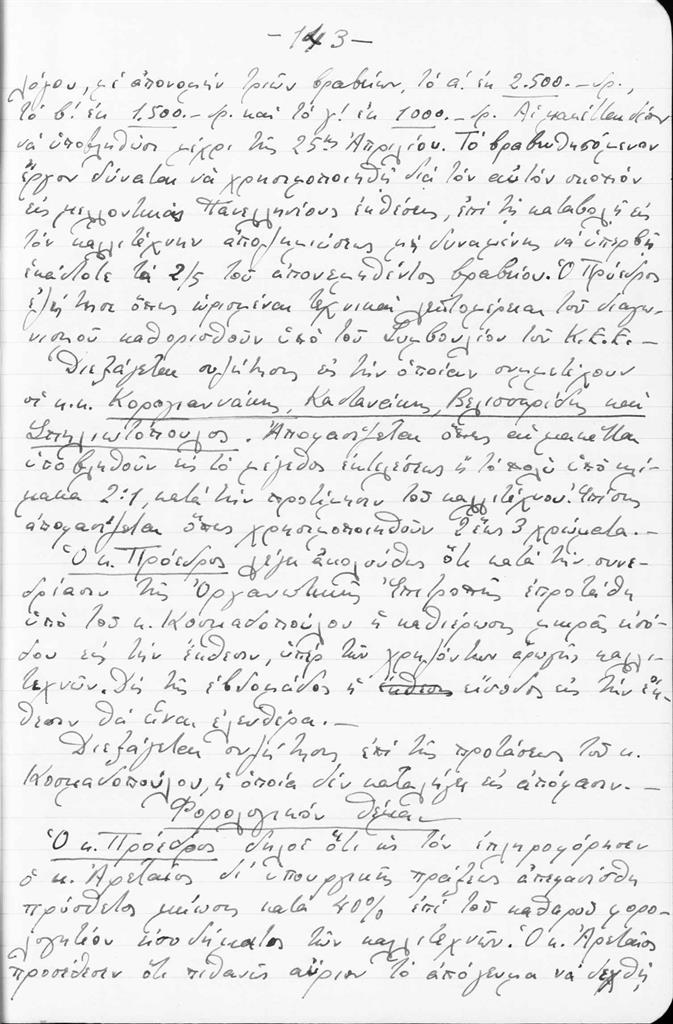 - 143 -
λόγου, μέ ἀπονομήν τριῶν βραβείων, τό α! ἐκ 2.500.- δρ.,
τό β! ἐκ 1.500.- δρ. καί τό γ! ἐκ 1000.- δρ. Αἱ μακέτται δέον
νά ὑποβληθῶσι μέχρι τῆς 25ης Ἀπριλίου. Τό βραβευθησόμενον
ἔργον δύναται νά χρησιμοποιηθῇ διά τόν αὐτόν σκοπόν
εἰς μελλοντικάς Πανελληνίους ἐκθέσεις, ἐπί τῇ καταβολῇ εἰς
τόν καλλιτέχνην ἀποζημιώσεως μή δυναμένης νά ὑπερβῇ
ἑκάστοτε τά 2/5 τοῦ ἀπονεμηθέντος βραβείου. Ὁ Πρόεδρος
ἐζήτησε ὅπως ὡρισμέναι τεχνικαί λεπτομέρειαι τοῦ διαγω-
νισμοῦ καθορισθοῦν ὑπό τοῦ Συμβουλίου τοῦ Κ.Ε.Ε.-
Διεξάγεται συζήτησις εἰς τήν ὁποίαν συμμετέχουν
οἱ κ.κ. Κορογιαννάκης, Καστανάκης, Βελισσαρίδης καί
Σπηλιωτόπουλος. Ἀποφασίζεται ὅπως αἱ μακέτται
ὑποβληθοῦν εἰς τό μέγεθος ἐκτελέσεως ἤ τό πολύ ὑπό κλί-
μακα 2:1, κατά τήν προτίμησιν τοῦ καλλιτέχνου. Ἐπίσης
ἀποφασίζεται ὅπως χρησιμοποιηθοῦν 2 ἕως 3 χρώματα.-
Ὁ κ. Πρόεδρος λέγει ἀκολούθως ὅτι κατά τήν συνε-
δρίασιν τῆς Ὀργανωτικῆς Ἐπιτροπῆς ἐπροτάθη
ὑπό τοῦ κ. Κοσμαδοπούλου ἡ καθιέρωσις μικρᾶς εἰσό-
δου εἰς τήν ἔκθεσιν, ὑπέρ τῶν χρηζόντων ἀρωγῆς καλλι-
τεχνῶν. Δίς τῆς ἑβδομάδος ἡ ἔκθεσις εἴσοδος εἰς τήν ἔκ-
θεσιν θά εἶναι ἐλευθέρα.-
Διεξάγεται συζήτησις ἐπί τῆς προτάσεως τοῦ κ.
Κοσμαδοπούλου, ἡ ὁποία δέν καταλήγει εἰς ἀπόφασιν.-
Φορολογικόν θέμα.-
Ὁ κ. Πρόεδρος δηλοῖ ὅτι ὡς τόν ἐπληροφόρησεν
ὁ κ. Ἀρεταῖος δι' ὑπουργικῆς πράξεως ἀπεφασίσθη
πρόσθετος μείωσις κατά 40% ἐπί τοῦ καθαροῦ φορο-
λογητέου εἰσοδήματος τῶν καλλιτεχνῶν. Ὁ κ. Ἀρεταῖος
προσέθεσεν ὅτι πιθανῶς αὔριον τό ἀπόγευμα νά δεχθῇ